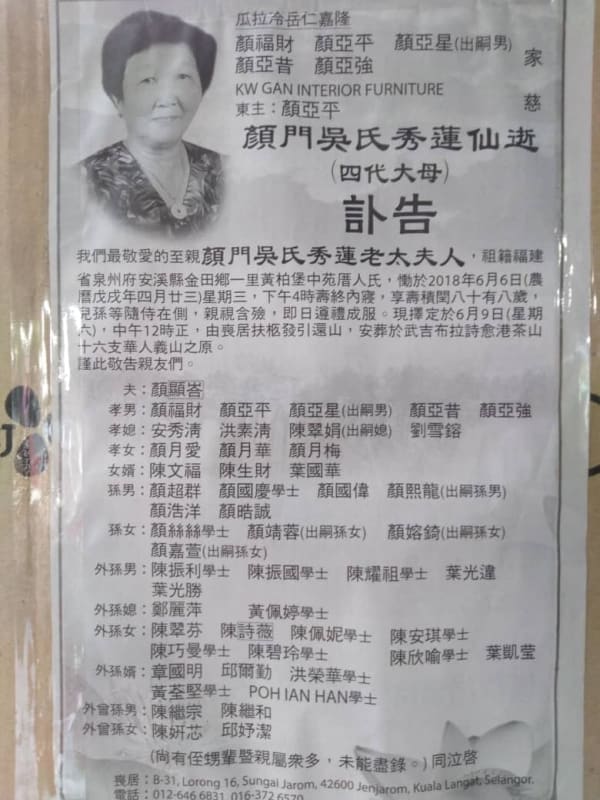 瓜拉冷岳仁嘉隆
顏福財 顏亞平 顏亞星(出嗣男)
顏亞昔 顏亞強
家慈
KW GAN INTERIOR FURNITURE
東主：顏亞平
顏門吳氏秀蓮仙逝
(四代大母)
訃告
我們最敬愛的至親顏門吳氏秀蓮老太夫人，祖籍福建
省泉州府安溪縣金田鄉一里黃柏堡中苑厝人氏，慟於2018年6月6日(農
曆戊戌年四月廿三)星期三，下午4時壽終內寢，享壽積閏八十有八歲，
兒孫等隨侍在側，親視含殮，即日遵禮成服。現擇定於6月9日(星期
六)，中午12時正，由喪居扶柩發引還山，安葬於武吉布拉詩愈港茶山
十六支華人義山之原。
謹此敬告親友們。
夫：顏顯峇
孝男：顏福財 顏亞平 顏亞星(出嗣男) 顏亞昔 顏亞強
孝媳：安秀清 洪素清 陳翠娟(出嗣媳) 劉雪鎔
孝女：顏月愛 顏月華 顏月梅
女婿：陳文福 陳生財 葉國華
孫男：顏超群 顏國慶學士 顏國偉 顏熙龍(出嗣孫男)
顏浩洋 顏晧誠
孫女：顏絲絲學士 顏靖蓉(出嗣孫女) 顏嫆錡(出嗣孫女)
顏嘉萱(出嗣孫女)
外孫男：陳振利學士 陳振國學士 陳耀祖學士 葉光漳
葉光勝
外孫媳：鄭麗萍 黃佩婷學士
外孫女：陳翠芬 陳詩薇 陳佩妮學士 陳安琪學士
陳巧曼學士 陳碧玲學士 陳欣喻學士 葉凱莹
外孫婿：章國明 邱爾勤 洪榮華學士
黃荃堅學士 POH IAN HAN學士
外曾孫男：陳繼宗 陳繼和
外曾孫女：陳妍芯 邱妤潔
(尚有侄甥輩暨親屬衆多，未能盡錄。) 同泣啓
喪居：B-31, Lorong 16, Sungai Jarom, 42600 Jenjarom, Kuala Langat, Selangor.
電話：012-646 6831, 016-372 6570